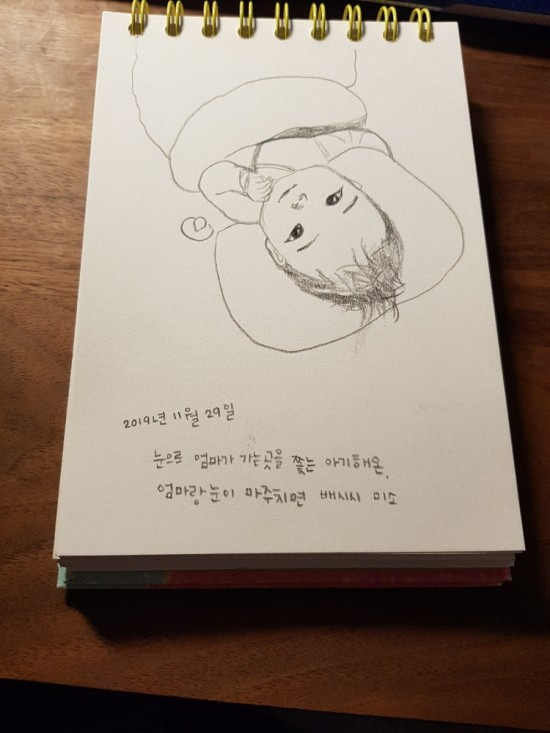 2019년 11월 29일
눈으로 엄마가 가는곳을 쫓는 아기해온,
엄마랑 눈이 마주치면 배시시 미소